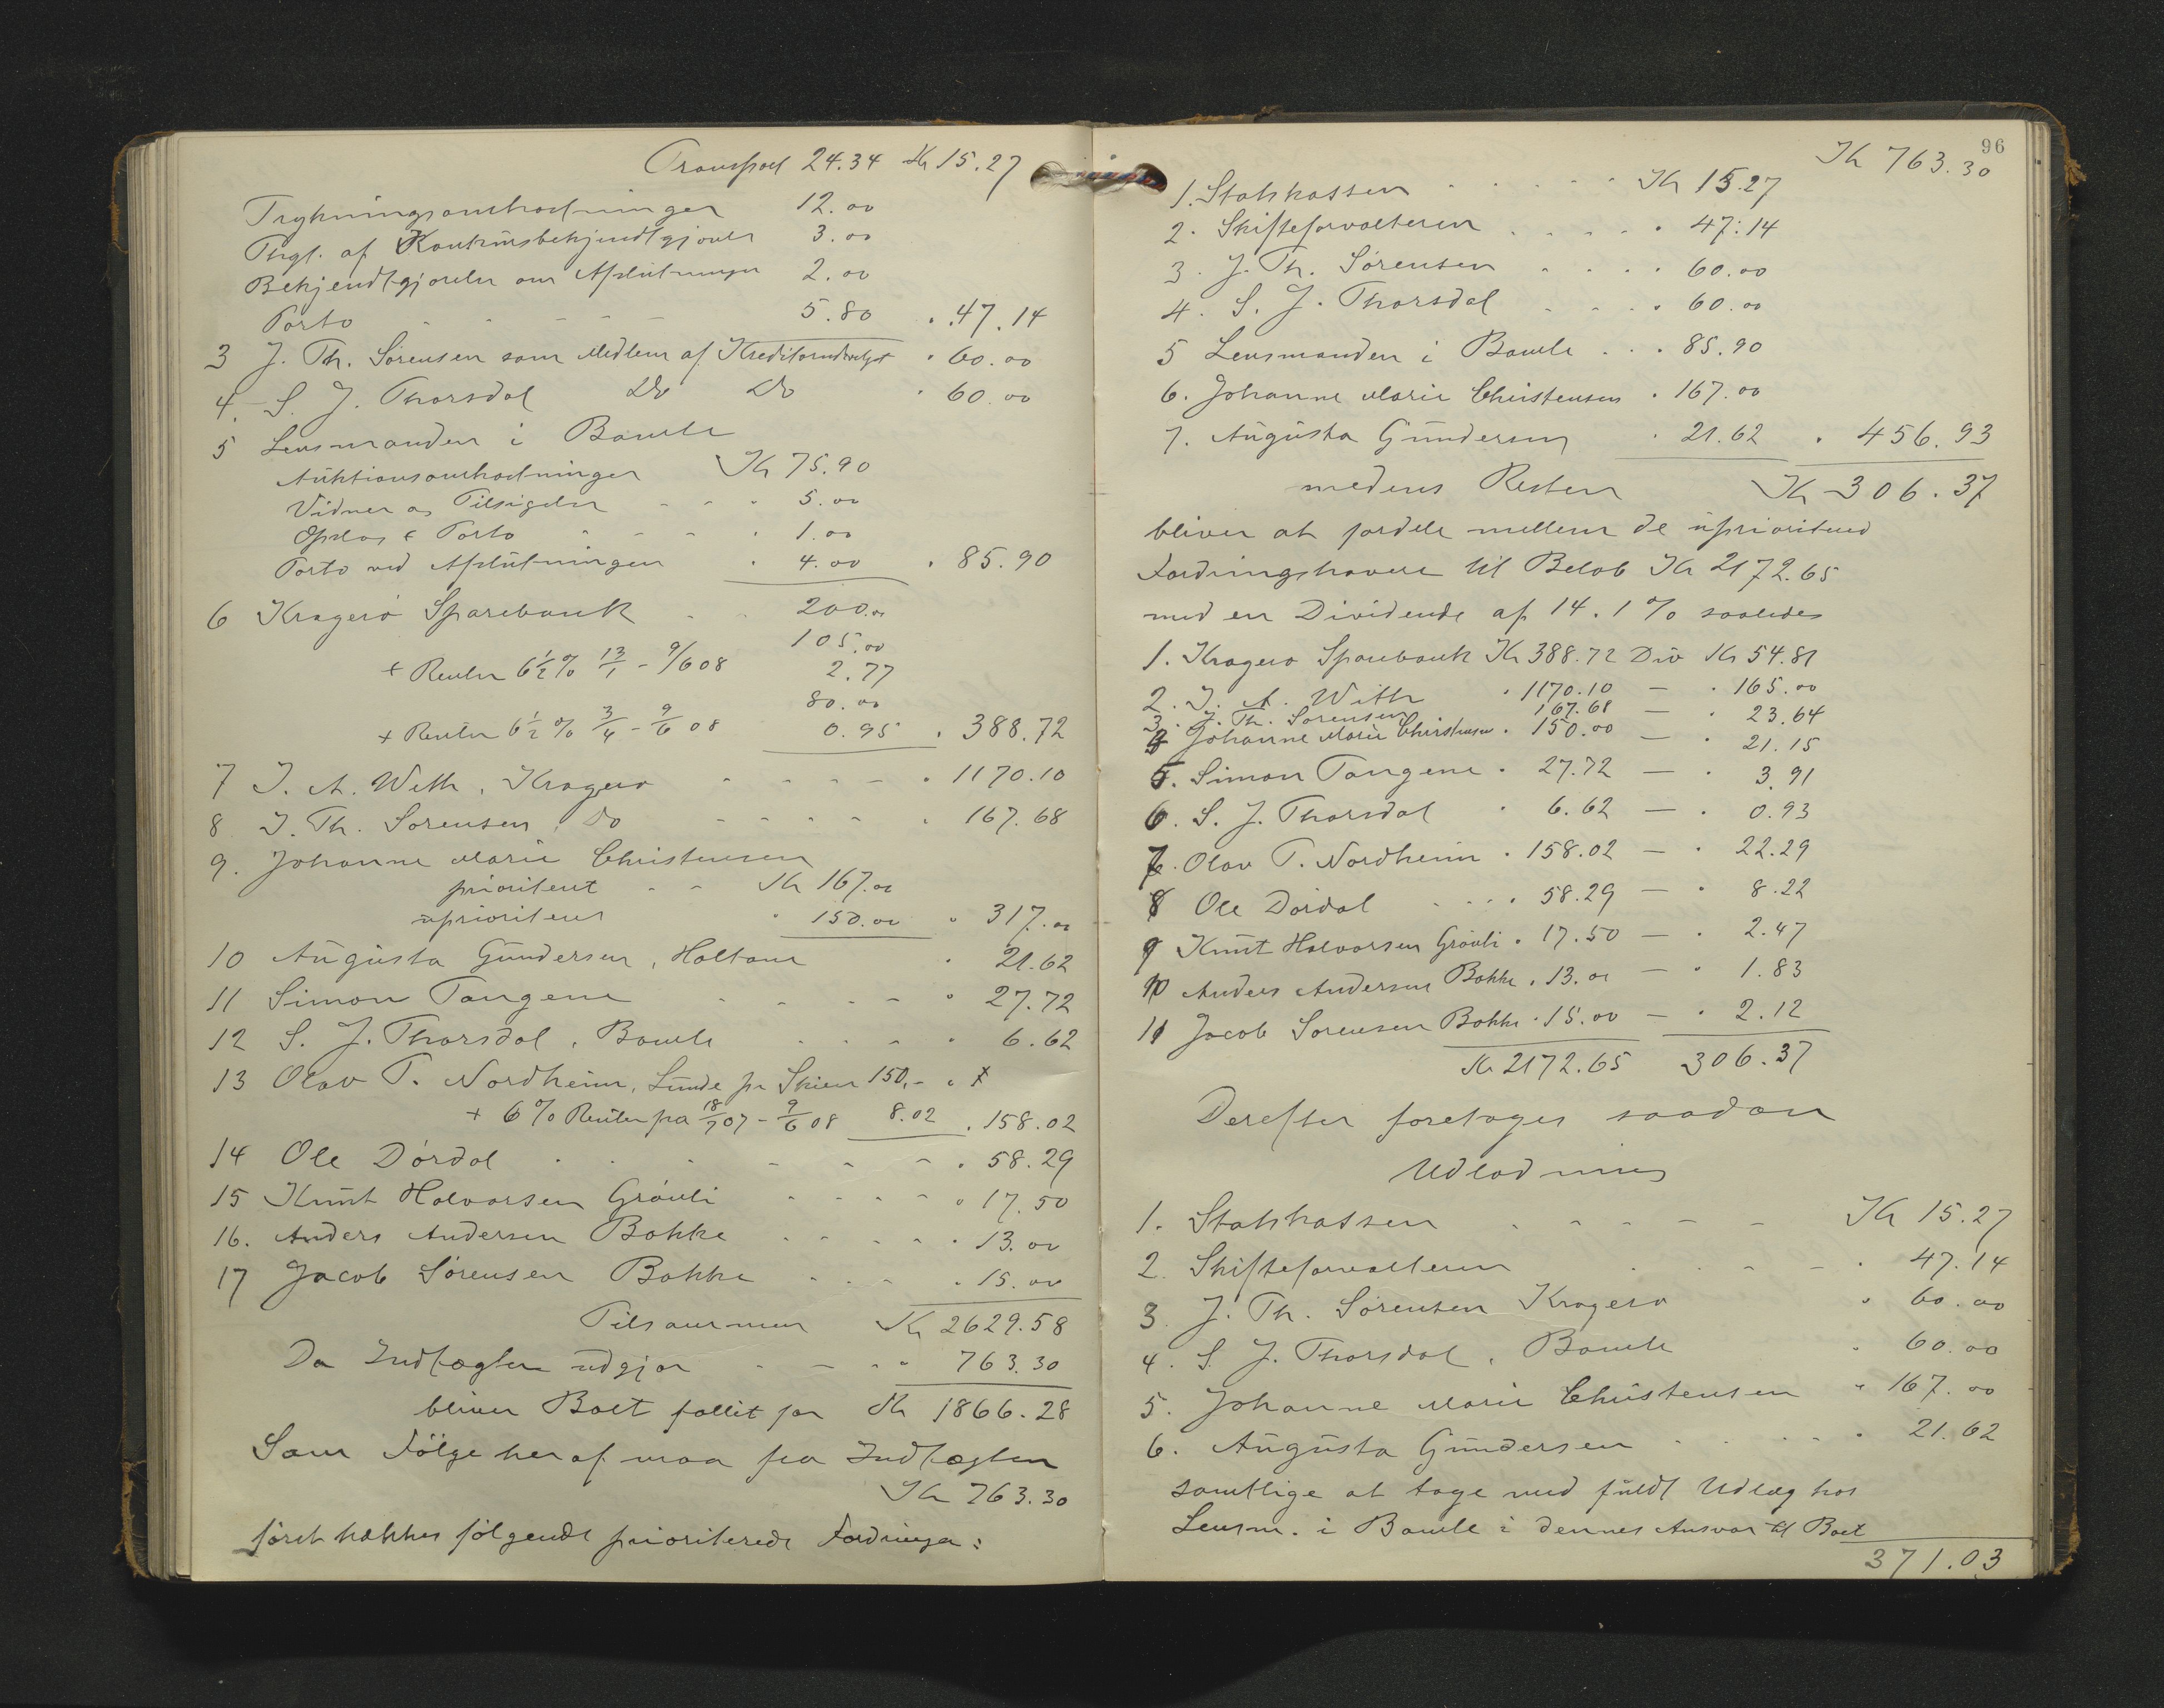 Transport 24.34 Kr 15.27
Trykningsomkostninger 12.00
Thgl. af Konkursbekjendtgjørelse 3.00
Bekjendtgjørelse om Afslutningen 2.00
Porto - - - - 5.80 " 47.14
3 J. Th. Sørensen som Medlem af Kreditorudvalget " 60.00
4. S. J. Thorsdal Do Do " 60.00
5 Lensmanden i Bamle
Auktionsomkostninger Kr 75.90
Vidner og Tilsigelse - - - 5.00
Opslag & Porto - - - " 1.00
Porto ved Afslutningen " 4.00 " 85.90
6 Kragerø Sparebank - - 200.00
105.00
+ Renter 6½ % 13/1 - 9/6 08 2.77
80.00
+ Renter 6½ % 3/4 - 9/6 08 0.95 " 388.72
7 I. A. With, Kragerø - - - - " 1170.10
8 J. Th. Sørensen, Do - - - - " 167.68
9. Johanne Marie Christensen
prioritert - - Kr 167.00
uprioritert " 150.00 " 317.00
10 Augusta Gundersen, Holtane " 21.62
11 Simon Tangene - - - - " 27.72
12 S. J. Thorsdal, Bamle - - - " 6.62
13 Olav T. Nordheim, Lunde pr Skien 150,- "
+ 6 % Renter fra 18/7 07 - 9/6 08 8.02 " 158.02
14 Ole Dørdal - - - - - " 58.29
15 Knut Halvorsen Grøvli - - - - " 17.50
16. Anders Andersen Bakke - - - - " 13.00
17 Jacob Sørensen Bakke - - - " 15.00
Tilsammen Kr 2629.58
Da Indtægten udgjør - - - " 763.30
bliver Boet fallit for Kr 1866.28
Som Følge heraf maa fra Indtægten
Kr 763.30
først trækkes følgende prioriterede Fordringer:
96
Kr 763.30
1. Statskassen - - - - - Kr 15.27
2. Skifteforvalteren - - - - " 47.14
3. J. Th. Sørensen - - - " 60.00
4. S. J. Thorsdal - - - " 60.00
5 Lensmanden i Bamle - - " 85.90
6. Johanne Marie Christensen " 167.00
7. Augusta Gundersen " 21.62 " 456.93
medens Resten Kr 306.37
bliver at fordele mellem de uprioriterede
Fordringshavere til Beløb Kr 2172.65
med en Dividende af 14.1 % saaledes
1. Kragerø Sparebank Kr 388.72 Div Kr 54.81
2. I. A. With " 1170.10 — " 165.00
3. J. Th. Sørensen 167.68 — " 23.64
4 Johanne Marie Christensen " 150.00 — " 21.15
5. Simon Tangene " 27.72 — " 3.91
6. S. J. Thorsdal " 6.62 — " 0.93
7. Olav T. Nordheim " 158.02 — " 22.29
8 Ole Dørdal - - - " 58.29 — " 8.22
9 Knut Halvorsen Grøvli " 17.50 — " 2.47
10 Anders Andersen Bakke " 13.00 — " 1.83
11 Jacob Sørensen Bakke " 15.00 — " 2.12
Kr 2172.65 306.37
Derefter foretages saadan
Udlodning
1. Statskassen - - - - - Kr 15.27
2. Skifteforvalteren - - - - " 47.14
3. J. Th. Sørensen Kragerø " 60.00
4. S. J. Thorsdal, Bamle " 60.00
5. Johanne Marie Christensen " 167.00
6. Augusta Gundersen - - - - " 21.62
samtlige at tage med fuldt Udlæg hos
Lensm. i Bamle i dennes Ansvar til Boet
371.03